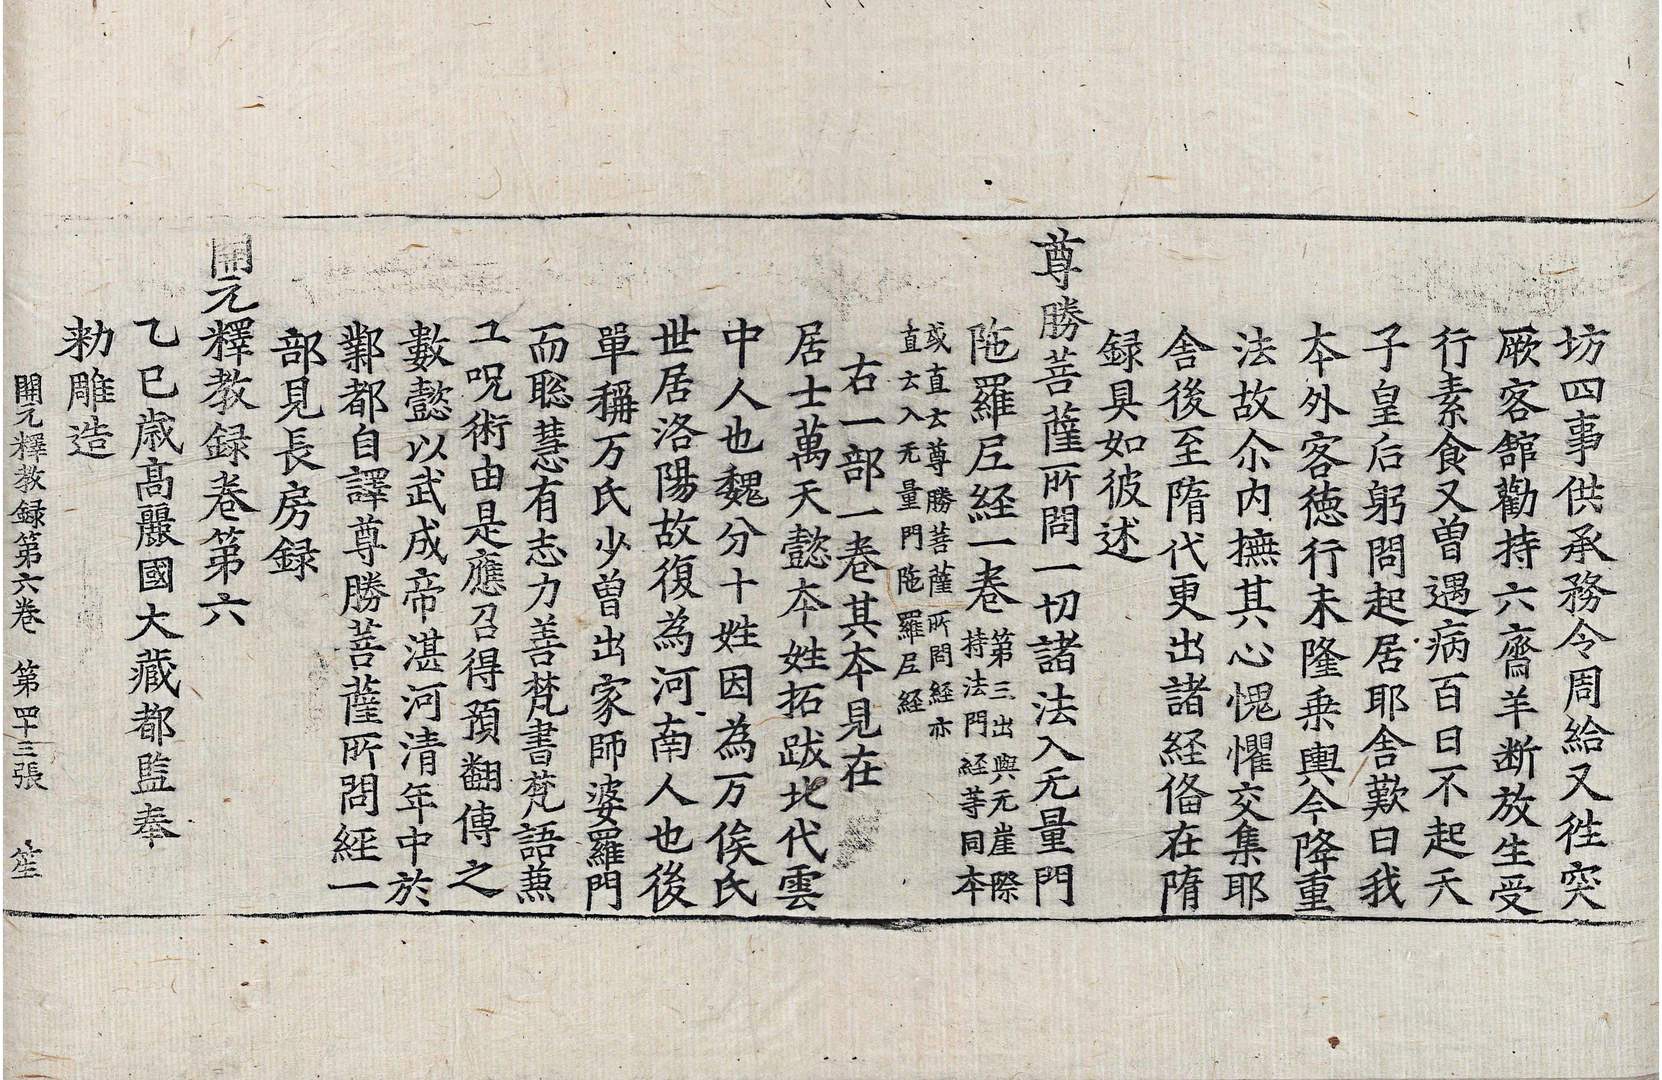 坊四事供承務令周給又徃突
厥客舘勸持六齋羊断放生受
行素食又曽遇病百日不起天
子皇后躬問起居耶舎歎曰我
夲外客徳行未隆乗輿今降重
法故尒内撫其心愧懼交集耶
舎後至隋代更出諸経俻在隋
録具如彼述
尊勝菩薩所問一切諸法入无量門
陁羅尼経一巻
第三出與无崖際
持法門経等同夲
或直云尊勝菩薩所問経亦
直云入无量門陁羅尼経
右一部一巻其夲見在
居士萬天懿夲姓拓跋北代雲
中人也魏分十姓因為万俟氏
世居洛陽故復為河南人也後
單稱万氏少曽出家師婆羅門
而聡慧有志力善梵書梵語兼
工呪術由是應召得預翻傳之
數懿以武成帝湛河清年中於
鄴都自譯尊勝菩薩所問経一
部見長房録
開元釋教録巻第六
乙巳歳高麗國大藏都監奉
勑雕造
開元釋教録第六巻 第四十三張 笙